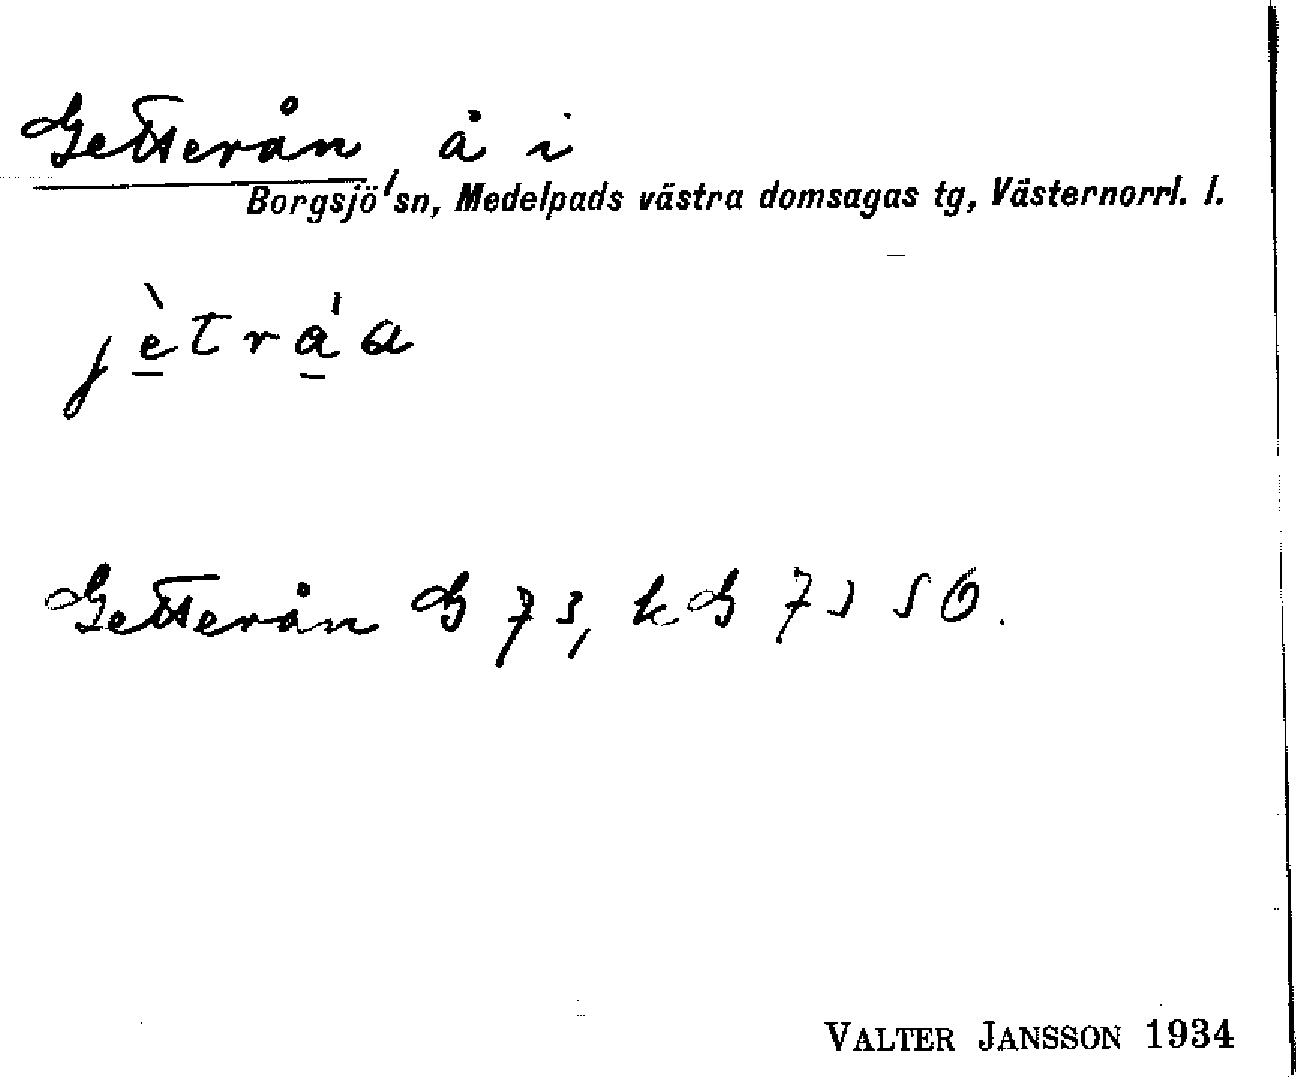 Getterån, å i
Borgsjö sn, Medelpads västra domsagas tg, Västernorrl. l.
jètrå'a
Getterån G 73, kG 73 S6.
VALTER JANSSON 1934